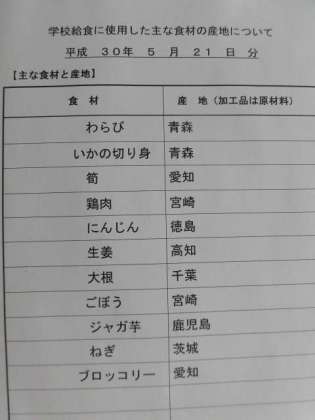 学校給食に使用した主な食材の産地について
平成 30年 5 月 21 日 分
【主な食材と産地】
食 材 産 地（加工品は原材料）
わらび 青森
いかの切り身 青森
筍 愛知
鶏肉 宮崎
にんじん 徳島
生姜 高知
大根 千葉
ごぼう 宮崎
ジャガ芋 鹿児島
ねぎ 茨城
ブロッコリー 愛知